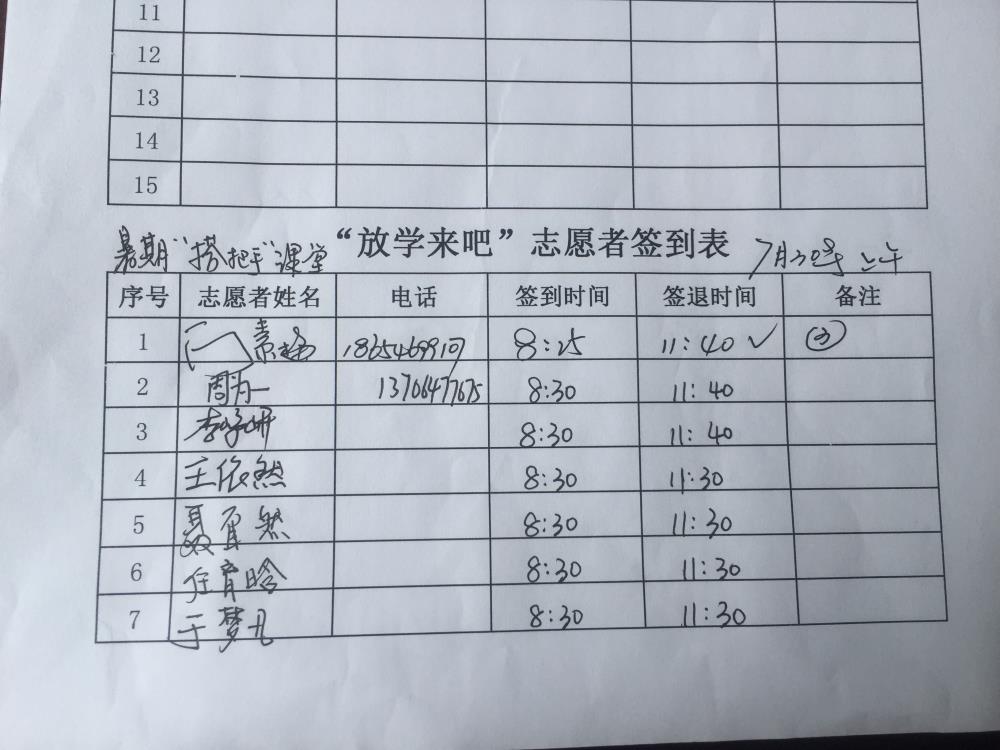 11
12
13
14
15
暑期"搭把手"课堂 “放学来吧”志愿者签到表 7月30号 上午
序号 志愿者姓名 电话 签到时间 签退时间 备注
1 8:25 11:40 ✓
2 周为一 13706477675 8:30 11:40
3 李子妍 8:30 11:40
4 王依然 8:30 11:30
5 聂宜然 8:30 11:30
6 任育晗 8:30 11:30
7 于梦凡 8:30 11:30